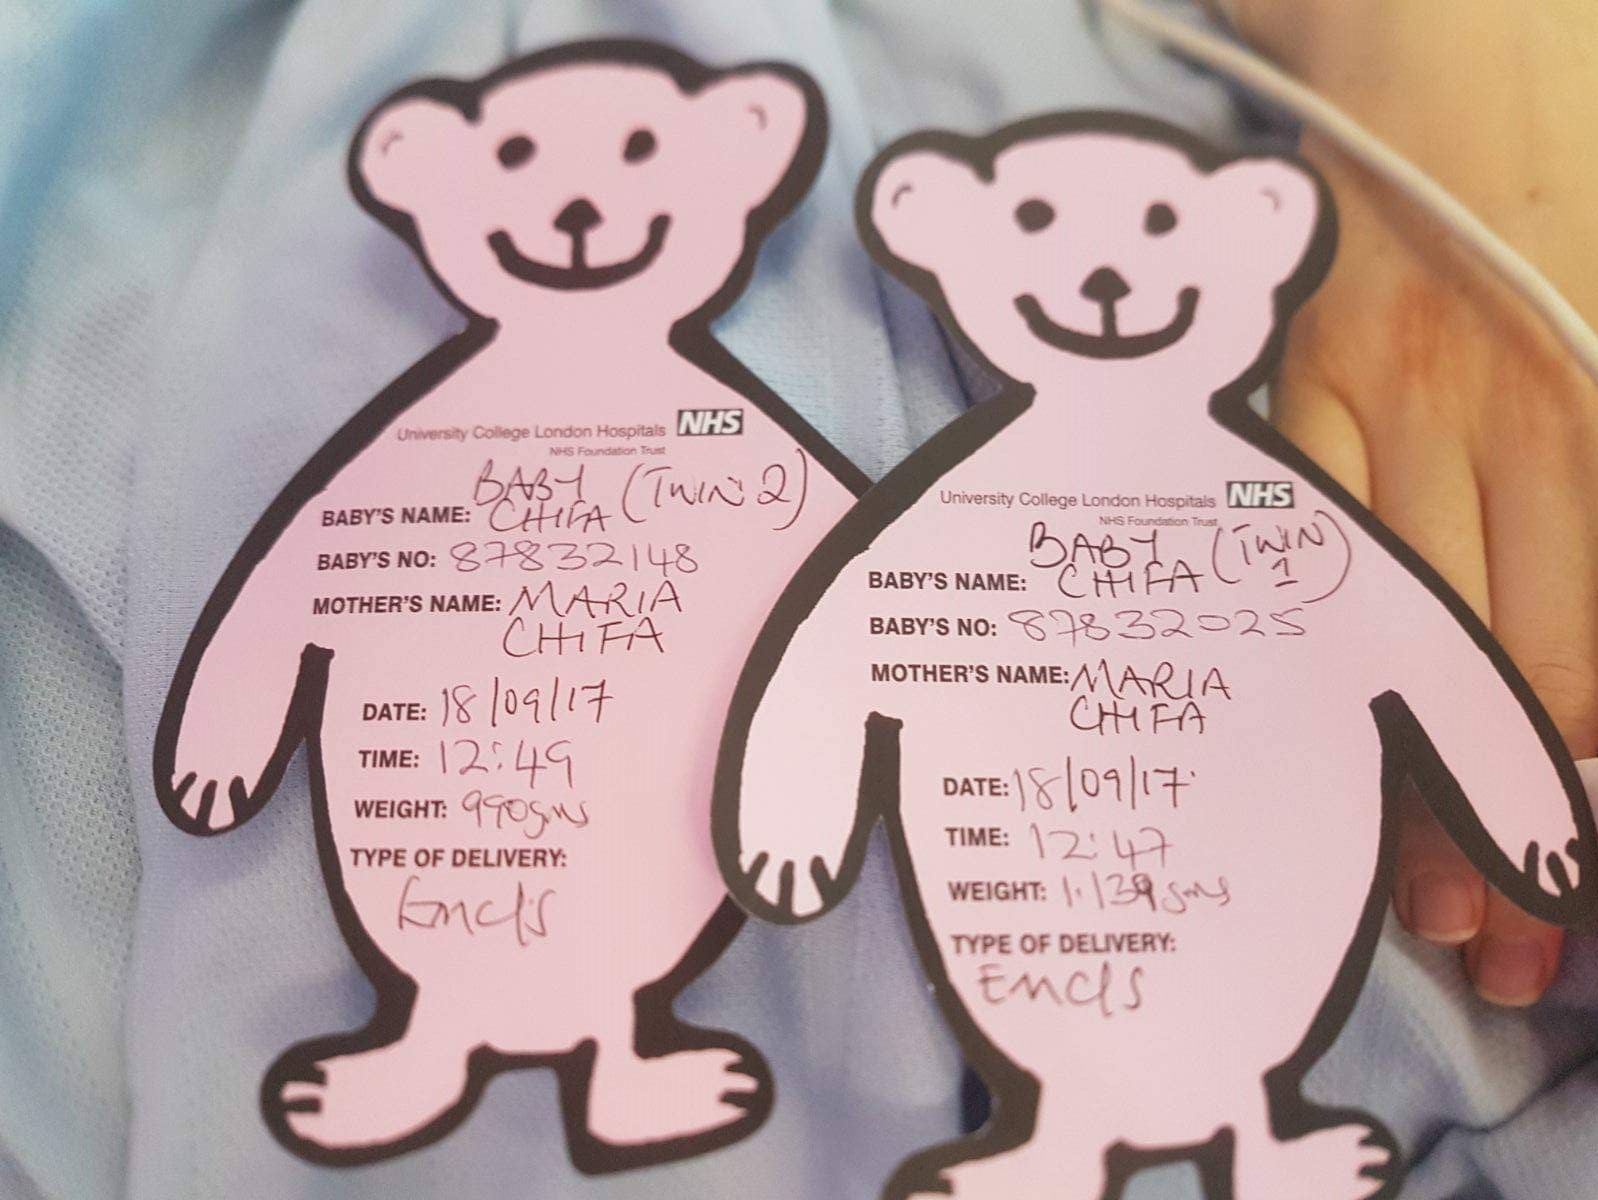 University College London Hospitals NHS
NHS Foundation Trust
BABY'S NAME: BABY CHIFA (TWIN 2)
BABY'S NO: 87832148
MOTHER'S NAME: MARIA
CHIFA
DATE: 18/09/17
TIME: 12:49
WEIGHT: 990gms
TYPE OF DELIVERY:
Emcls
University College London Hospitals NHS
NHS Foundation Trust
BABY'S NAME: BABY CHIFA (TWIN 1)
BABY'S NO: 87832025
MOTHER'S NAME: MARIA
CHIFA
DATE: 18/09/17
TIME: 12:47
WEIGHT: 1.139gms
TYPE OF DELIVERY:
EMCLS